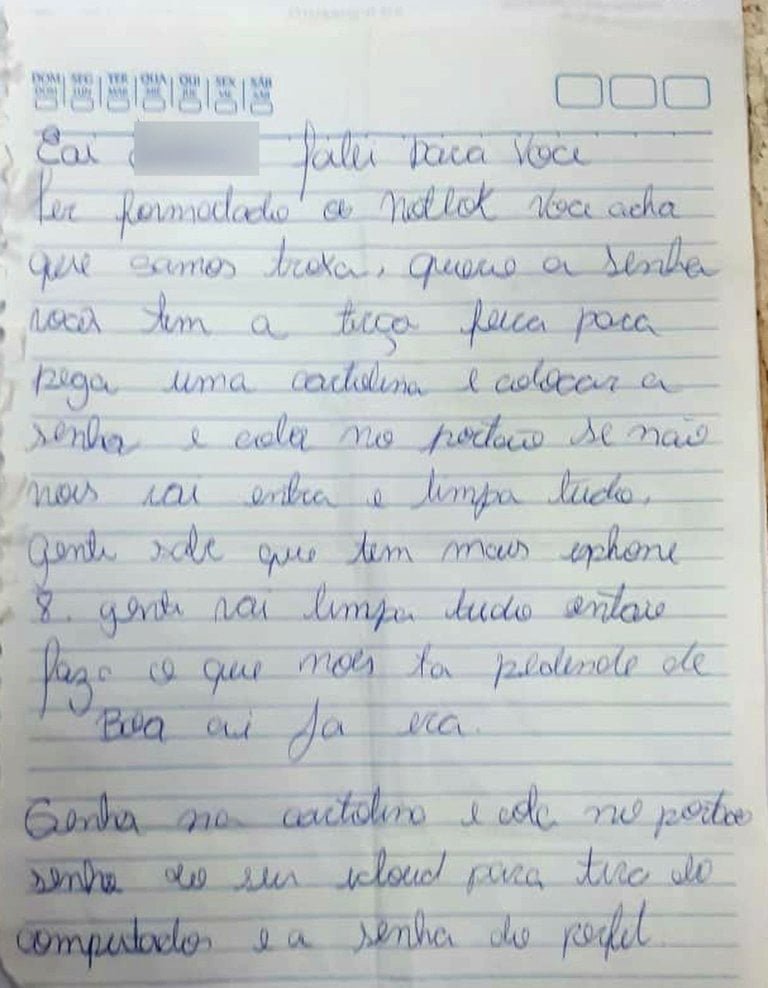 DOM SEG TER QUA QUI SEX SÁB
Eai falei para voce
ter formadado a notlok voce acha
que samos troxa, quero a senha
voce tem a terça feira para
pega uma cartolina e colocar a
senha e cola no portão se não
nois vai entra e limpa tudo.
gente sabe que tem mais iphone
8. gente vai limpa tudo então
faze o que nois ta pedindo de
Boa ai ja era.
Senha na cartolina e cola no portão
senha do seu icloud para tira do
computador e a senha do perfil